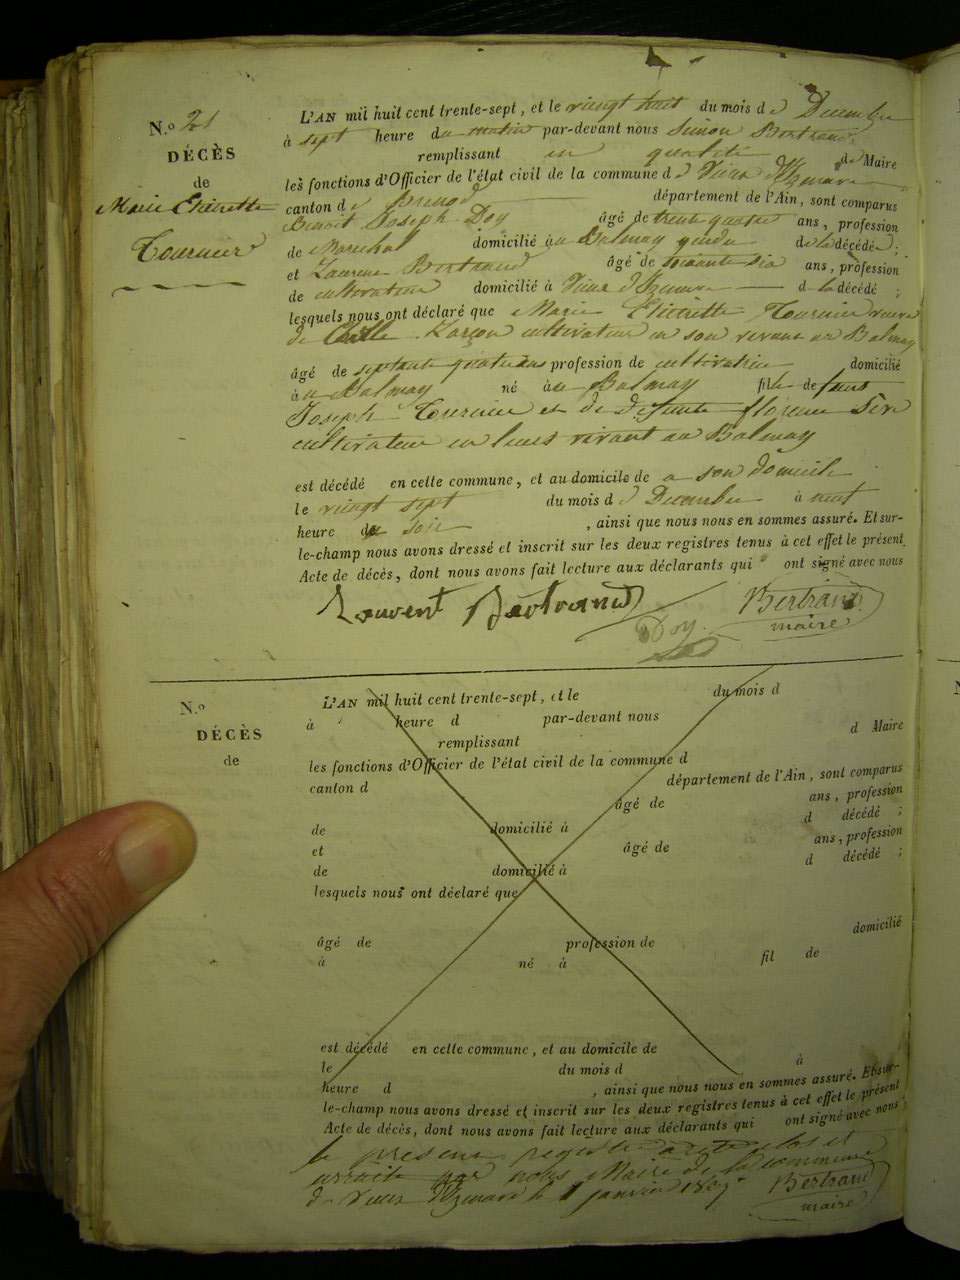 N.º 21
DÉCÈS
de
Marie Etiennette
Tournier
L'AN mil huit cent trente-sept, et le vingt huit du mois de Decembre
à sept heure du matin par-devant nous Simon Bertrand
remplissant en qualité de Maire
les fonctions d'Officier de l'état civil de la commune de Vieux d'Izenave
canton de Brenod département de l'Ain, sont comparus
Benoit Joseph Doy âgé de trente quatre ans, profession
de Marechal domicilié au Balmay de la décédée ;
et Laurent Bertrand âgé de soixante six ans, profession
de cultivateur domicilié à Vieux d'Izenave d la décédé ;
lesquels nous ont déclaré que Marie Etiennette Tournier veuve
de cultivateur en son vivant au Balmay
âgé de septante quatre ans profession de cultivatrice domicilié
à au Balmay né à au Balmay fille de feu
Joseph Tournier et de Defunte florence
cultivateur en leurs vivant au Balmay
est décédé en cette commune, et au domicile de a son domicile
le vingt sept du mois d de Decembre à neuf
heure du soir , ainsi que nous nous en sommes assuré. Et sur-
le-champ nous avons dressé et inscrit sur les deux registres tenus à cet effet le présent
Acte de décès, dont nous avons fait lecture aux déclarants qui ont signé avec nous
Laurent Bertrand Doy Bertrand
maire
N.º
DÉCÈS
de
L'AN mil huit cent trente-sept, et le du mois d
à heure d par-devant nous
remplissant d Maire
les fonctions d'Officier de l'état civil de la commune d
canton d département de l'Ain, sont comparus
âgé de ans, profession
de domicilié à d décédé ;
et âgé de ans, profession
de domicilié à d décédé ;
lesquels nous ont déclaré que
âgé de profession de domicilié
à né à fil de
est décédé en cette commune, et au domicile de
le du mois d à
heure d , ainsi que nous nous en sommes assuré. Et sur-
le-champ nous avons dressé et inscrit sur les deux registres tenus à cet effet le présent
Acte de décès, dont nous avons fait lecture aux déclarants qui ont signé avec nous
le present registre a été clos et
arrêté par nous Maire de la commune
de Vieux d'Izenave le 1 janvier Bertrand
maire